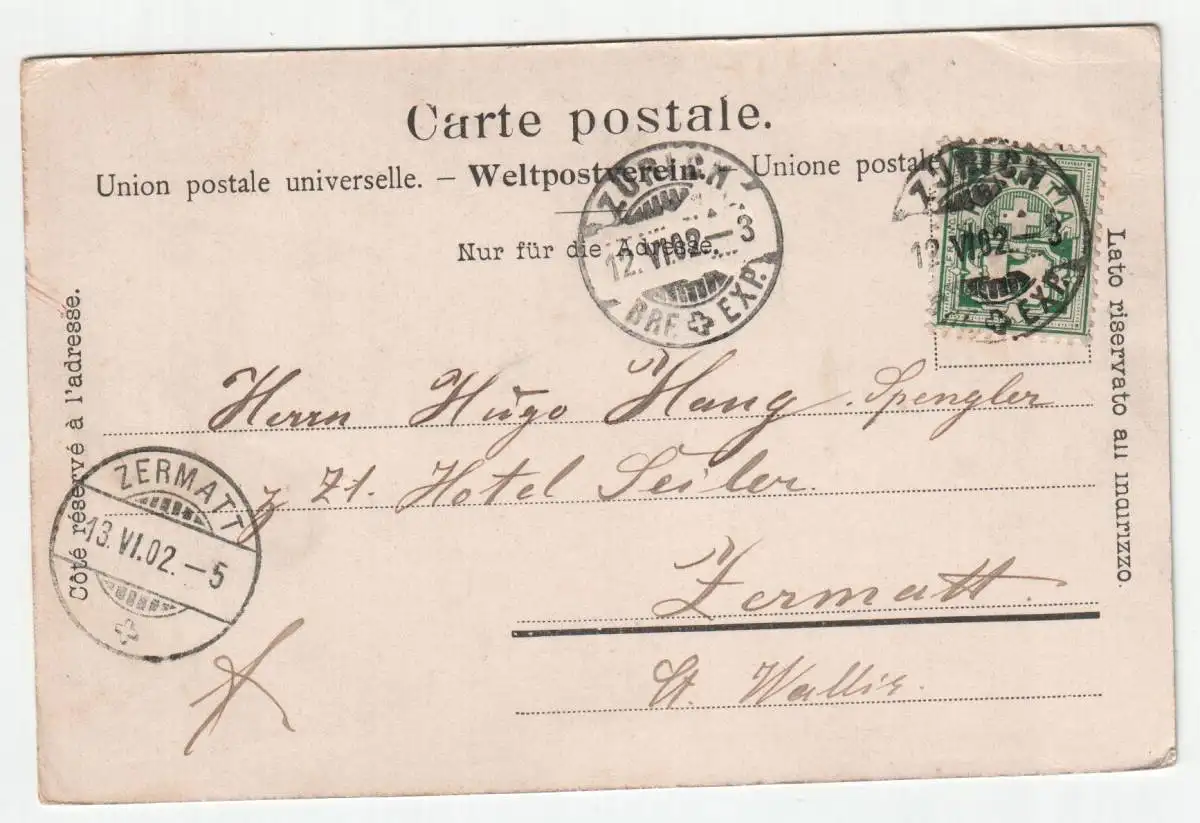 Carte postale.
Union postale universelle. – Weltpostverein. – Unione postale
Nur für die Adresse.
Côté réservé à l'adresse.
Lato riservato all indirizzo.
ZÜRICH
12.VI.02.–3
BRF EXP.
ZÜRICH
12.VI.02.–3
EXP.
Herrn Hugo Haug, Spengler
z. Zt. Hotel Seiler
Zermatt.
Ct. Wallis.
ZERMATT
13.VI.02.–5